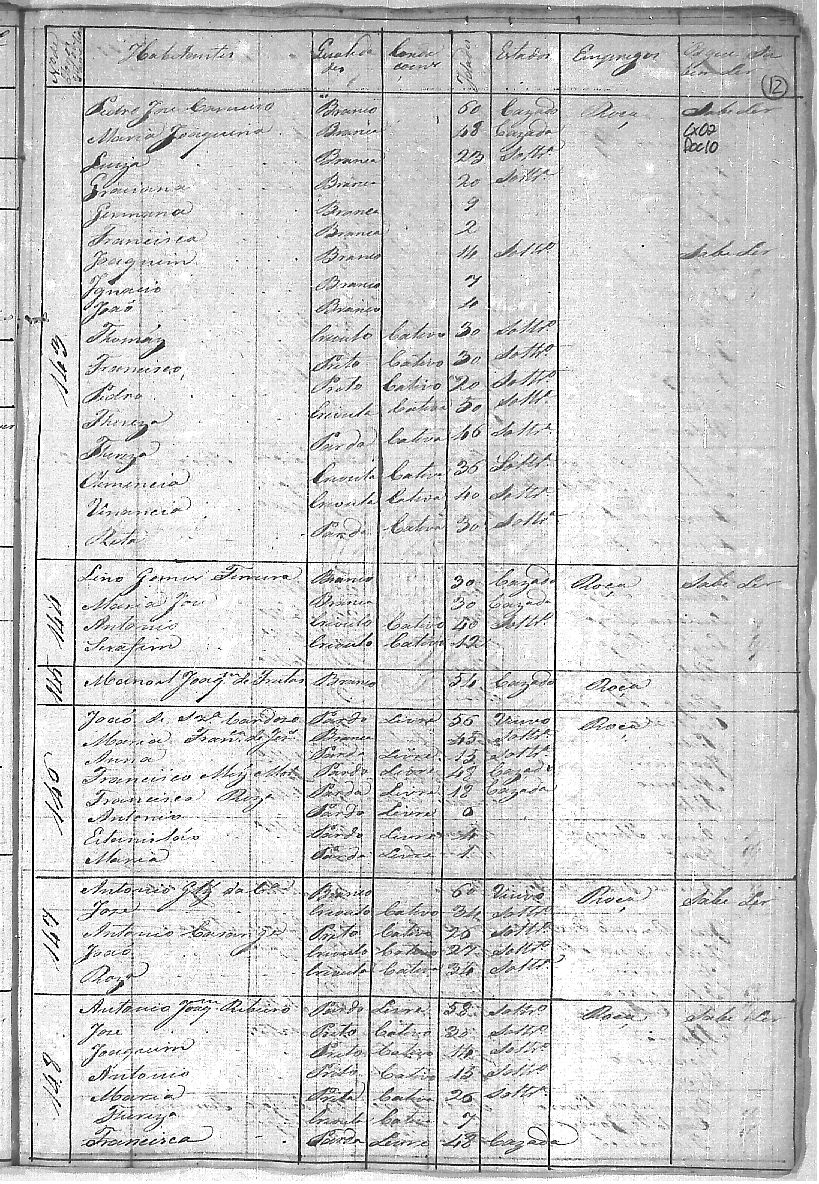 Habitantes Qualidades Idades Estados Empregos
12
Pedro Jose Carneiro Branco 60 Cazado Roça Sabe Ler
Maria Joaquina Branca 48 Cazada Cx02
Luiza Branca 23 Soltrª Doc10
Graciana Branca 20 Soltrª
Germana Branca 9
Francisca Branca 2
Joaquim Branco 14 Soltrº Sabe Ler
Ignacio Branco 7
João Branco 10
143
Thomáz Crioulo Cativo 30 Soltrº
Francisco Preto Cativo 30 Soltrº
Pedro Preto Cativo 20 Soltrº
Thereza Crioula Cativa 50 Soltrª
Tereza Parda Cativa 46 Soltrª
Clemencia Crioula Cativa 36 Soltrª
Venancia Crioula Cativa 40 Soltrª
Rita Parda Cativa 30 Soltrª
144
Lino Gomes Ferreira Branco 30 Cazado Roça Sabe Ler
Maria Jose Branca 30 Cazada
Antonio Crioulo Cativo 40 Soltrº
Serafim Crioulo Cativo 12
Manoel Joaqm de Freitas Branco 54 Cazado Roça
João de Cardozo Pardo Livre 56 Viuvo Roça
Maria Branca 45 Soltrª
Anna Parda Livre 15 Soltrª
Francisco Pardo Livre 42 Cazado
Francisca Roza Parda Livre 18 Cazada
Antonio Pardo Livre 6
Estanisláo Pardo Livre 4
Maria Parda Livre 1
147
Antonio da Branco 60 Viuvo Roça Sabe Ler
Jose Crioulo Cativo 34 Soltrº
Antonio Preto Cativo 26 Soltrº
João Crioulo Cativo 27 Soltrº
Roza Crioula Cativa 34 Soltrª
148
Antonio Joaqm Ribeiro Pardo Livre 58 Soltrº Roça Sabe Ler
Jose Preto Cativo 35 Soltrº
Joaquim Preto Cativo 14 Soltrº
Antonio Preto Cativo 13 Soltrº
Maria Preta Cativa 20 Soltrª
Tereza Crioula Cativa 7
Francisca Parda Livre 48 Cazada